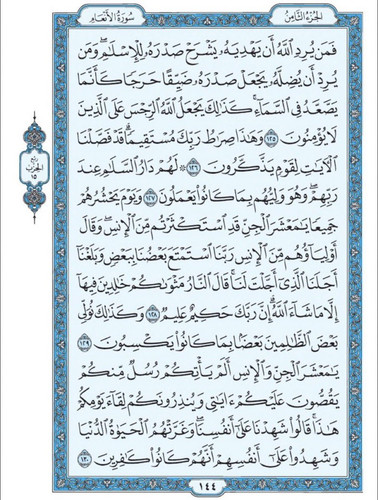 الجزء الثامن
سورة الأنعام
فَمَن يُرِدِ اللَّهُ أَن يَهْدِيَهُ يَشْرَحْ صَدْرَهُ لِلْإِسْلَامِ ۖ وَمَن
يُرِدْ أَن يُضِلَّهُ يَجْعَلْ صَدْرَهُ ضَيِّقًا حَرَجًا كَأَنَّمَا
يَصَّعَّدُ فِي السَّمَاءِ ۚ كَذَٰلِكَ يَجْعَلُ اللَّهُ الرِّجْسَ عَلَى الَّذِينَ
لَا يُؤْمِنُونَ ١٢٥ وَهَٰذَا صِرَاطُ رَبِّكَ مُسْتَقِيمًا ۗ قَدْ فَصَّلْنَا
الْآيَاتِ لِقَوْمٍ يَذَّكَّرُونَ ١٢٦ ۞ لَهُمْ دَارُ السَّلَامِ عِندَ
رَبِّهِمْ ۖ وَهُوَ وَلِيُّهُم بِمَا كَانُوا يَعْمَلُونَ ١٢٧ وَيَوْمَ يَحْشُرُهُمْ
جَمِيعًا يَا مَعْشَرَ الْجِنِّ قَدِ اسْتَكْثَرْتُم مِّنَ الْإِنسِ ۖ وَقَالَ
أَوْلِيَاؤُهُم مِّنَ الْإِنسِ رَبَّنَا اسْتَمْتَعَ بَعْضُنَا بِبَعْضٍ وَبَلَغْنَا
أَجَلَنَا الَّذِي أَجَّلْتَ لَنَا ۚ قَالَ النَّارُ مَثْوَاكُمْ خَالِدِينَ فِيهَا
إِلَّا مَا شَاءَ اللَّهُ ۗ إِنَّ رَبَّكَ حَكِيمٌ عَلِيمٌ ١٢٨ وَكَذَٰلِكَ نُوَلِّي
بَعْضَ الظَّالِمِينَ بَعْضًا بِمَا كَانُوا يَكْسِبُونَ ١٢٩
يَا مَعْشَرَ الْجِنِّ وَالْإِنسِ أَلَمْ يَأْتِكُمْ رُسُلٌ مِّنكُمْ
يَقُصُّونَ عَلَيْكُمْ آيَاتِي وَيُنذِرُونَكُمْ لِقَاءَ يَوْمِكُمْ
هَٰذَا ۚ قَالُوا شَهِدْنَا عَلَىٰ أَنفُسِنَا ۖ وَغَرَّتْهُمُ الْحَيَاةُ الدُّنْيَا
وَشَهِدُوا عَلَىٰ أَنفُسِهِمْ أَنَّهُمْ كَانُوا كَافِرِينَ ١٣٠
ربع
الحزب
١٥
١٤٤